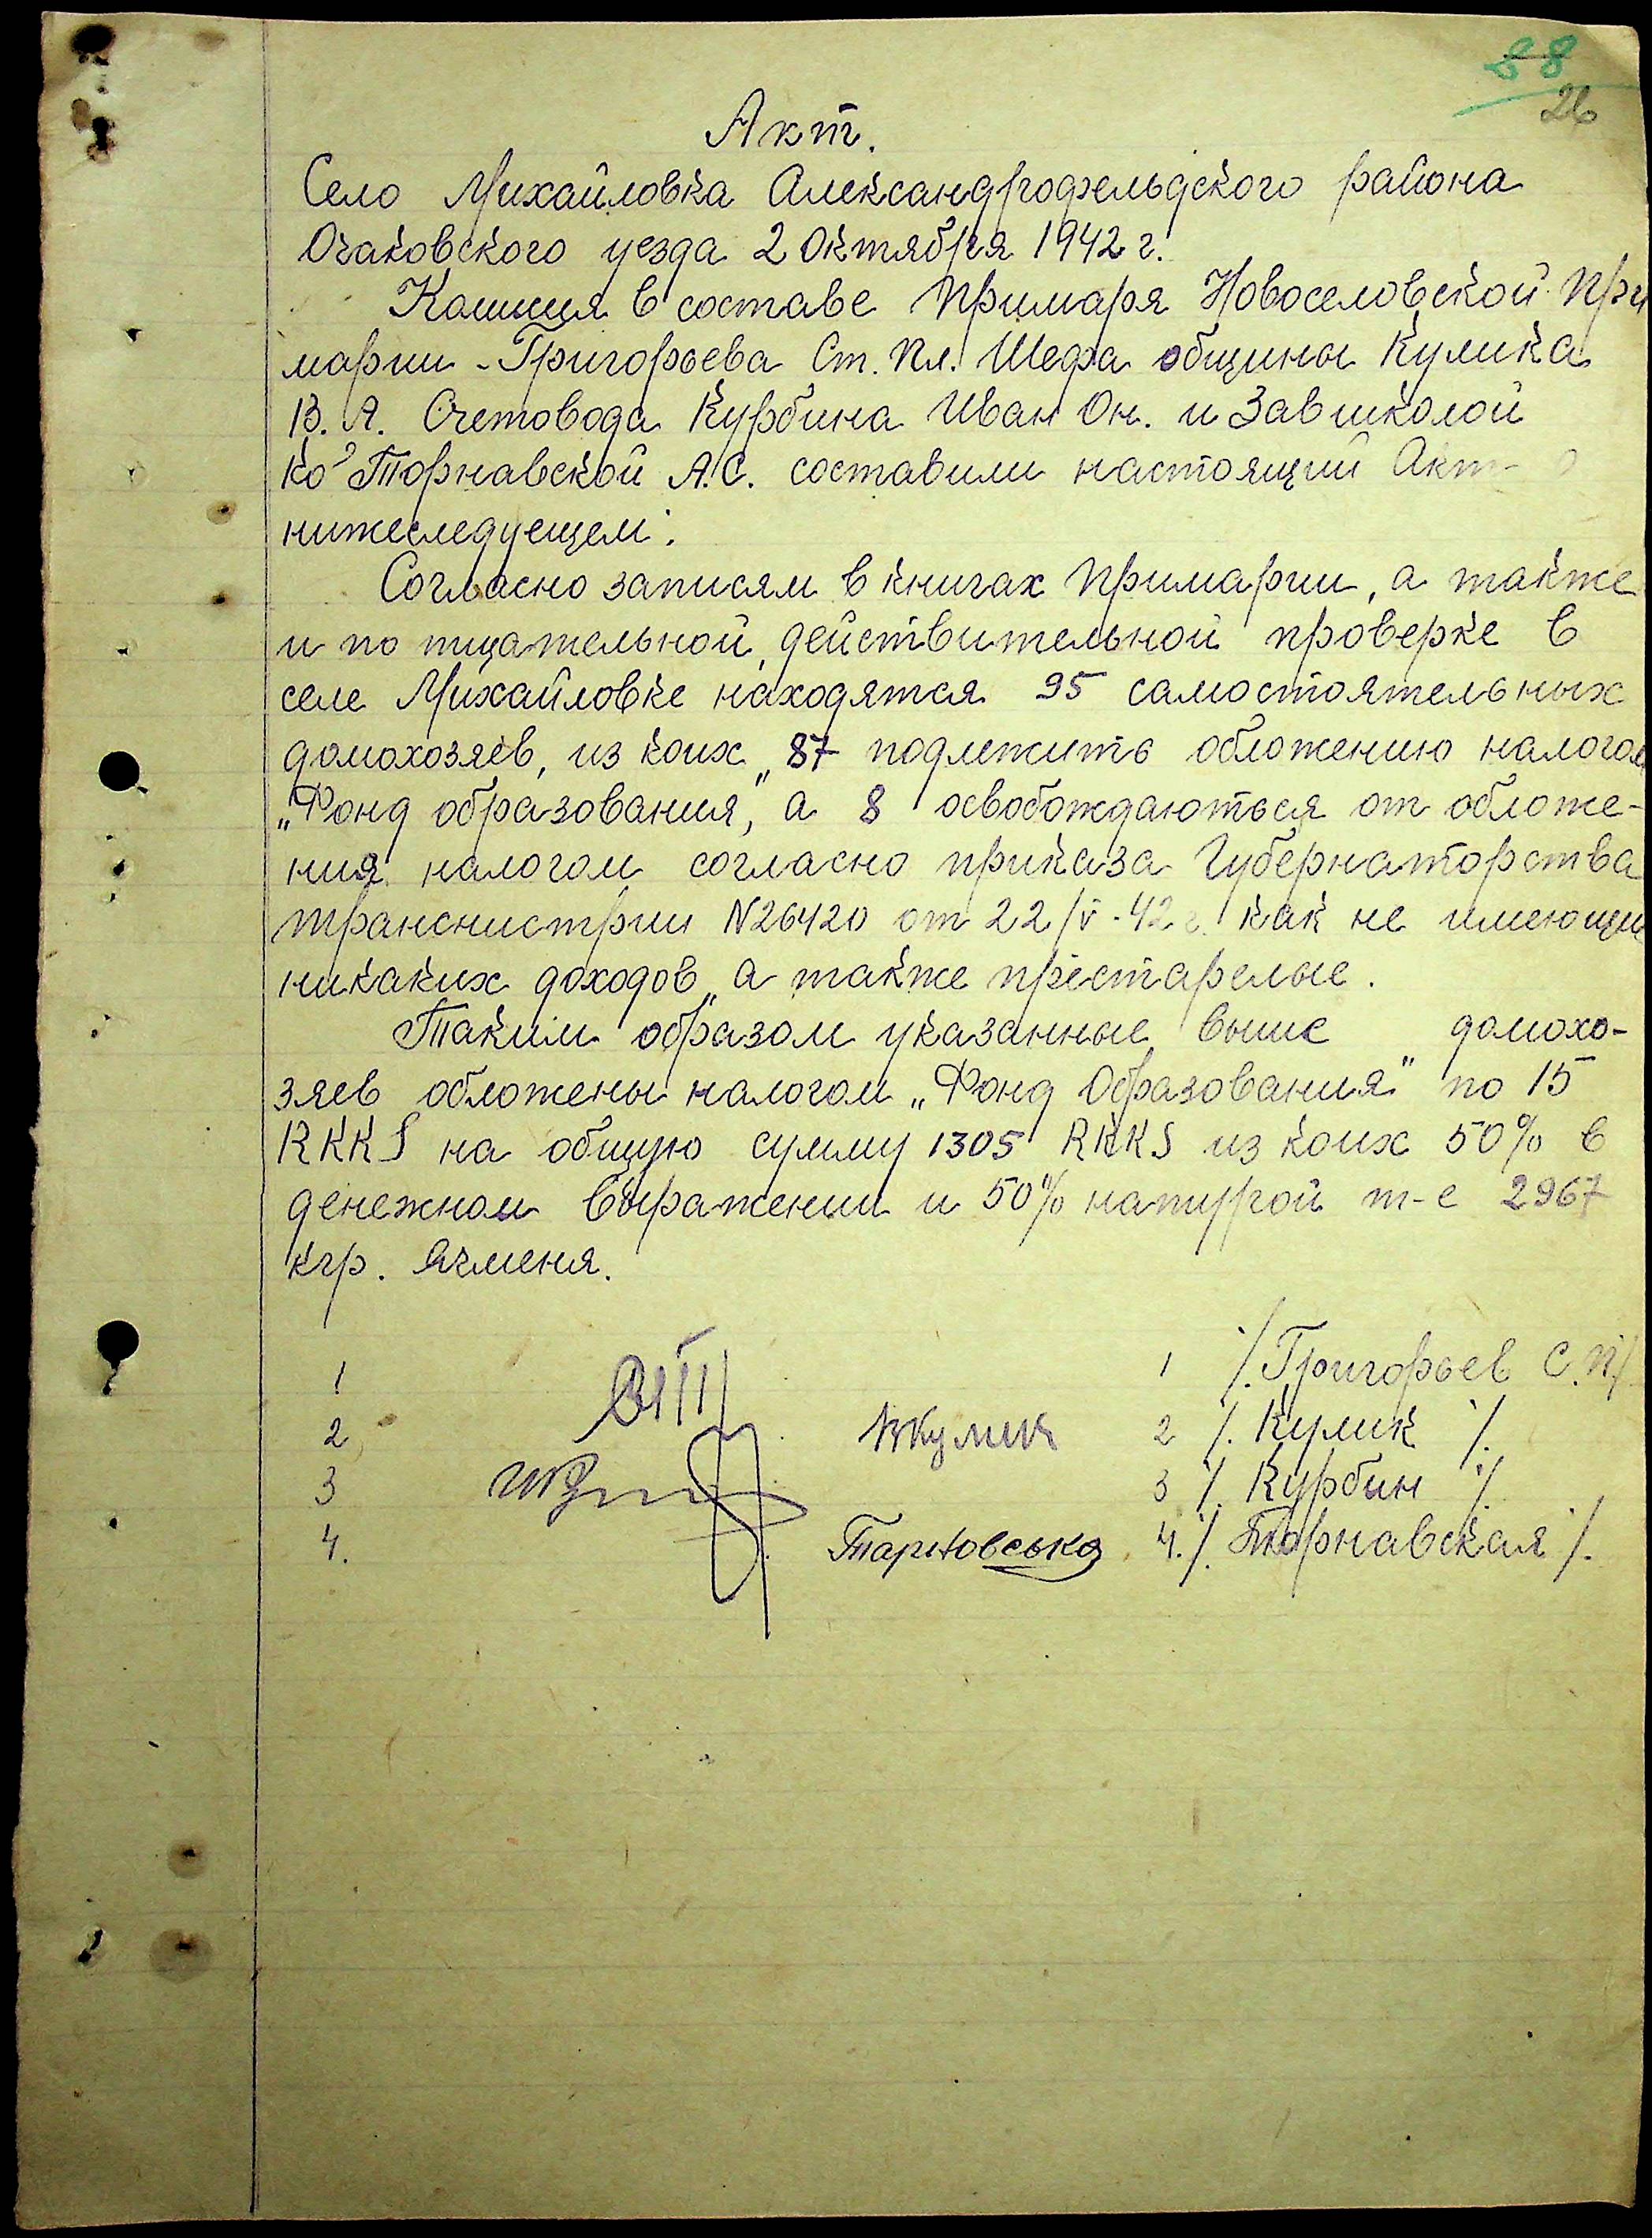 88
26
Акт.
Село Михайловка Александрофельдского района
Очаковского уезда 2 Октября 1942 г.
Комиция в составе Примаря Новоселовской При
марии - Григорьева Ст. Пл. Шефа общины Кулика
В. А. Счетовода Курбина Иван Он. и Завшколой
ко Торнавской А.С. составили настоящий Акт о
нижеследуещем:
Согласно записям в книгах Примарии, а также
и по тщательной, действительной проверке в
селе Михайловке находятся 95 самостоятельных
домохозяев, из коих „ 87 подлежить обложению налогом
„Фонд образования, а 8 освобождаються от обложе-
ния налогом согласно приказа Губернаторства
Транснистрии N26420 от 22/V-42 г. как не имеющи
никаких доходов, а также престарелые.
Таким образом указанные выше домохо-
зяев обложены налогом „Фонд Образования" по 15
RKKS на общую сумму 1305 RKKS из коих 50% в
денежном выражении и 50% натурой т-е 2967
кгр. Ячменя.
1 1 /. Григорьев С.П /
2 ВКулик 2 /. Кулик /.
3 3 /. Курбин /.
4. Тарновська 4. /. Торнавская /.